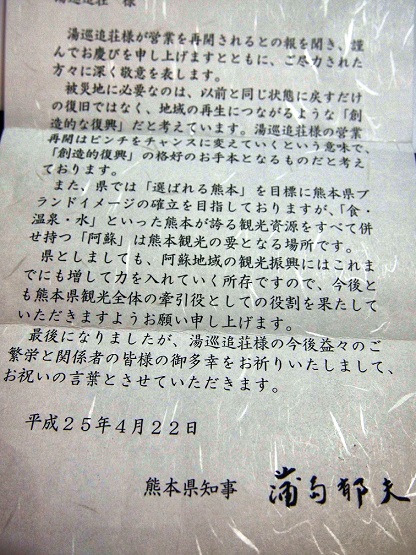 湯巡追荘 様
湯巡追荘様が営業を再開されるとの報を聞き、謹
んでお慶びを申し上げますとともに、ご尽力された
方々に深く敬意を表します。
被災地に必要なのは、以前と同じ状態に戻すだけ
の復旧ではなく、地域の再生につながるような「創
造的な復興」だと考えています。湯巡追荘様の営業
再開はピンチをチャンスに変えていくという意味で、
「創造的復興」の格好のお手本となるものだと考え
ております。
また、県では「選ばれる熊本」を目標に熊本県ブ
ランドイメージの確立を目指しておりますが、「食・
温泉・水」といった熊本が誇る観光資源をすべて併
せ持つ「阿蘇」は熊本観光の要となる場所です。
県としましても、阿蘇地域の観光振興にはこれま
でにも増して力を入れていく所存ですので、今後と
も熊本県観光全体の牽引役としての役割を果たして
いただきますようお願い申し上げます。
最後になりましたが、湯巡追荘様の今後益々のご
繁栄と関係者の皆様の御多幸をお祈りいたしまして、
お祝いの言葉とさせていただきます。
平成25年4月22日
熊本県知事 蒲島郁夫